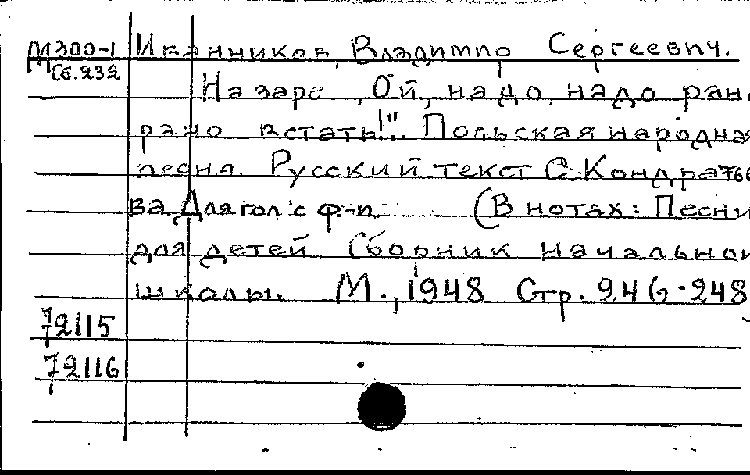 М300-1 Иванников, Владимир Сергеевич.
Сб.232
На заре „Ой, надо, надо рано
рано встать!" Польская народная
песня. Русский текст С. Кондратье
ва Для гол. с ф-п. (В нотах: Песни
для детей Сборник начальной
школы. М., 1948 Стр. 246-248)
72115
72116